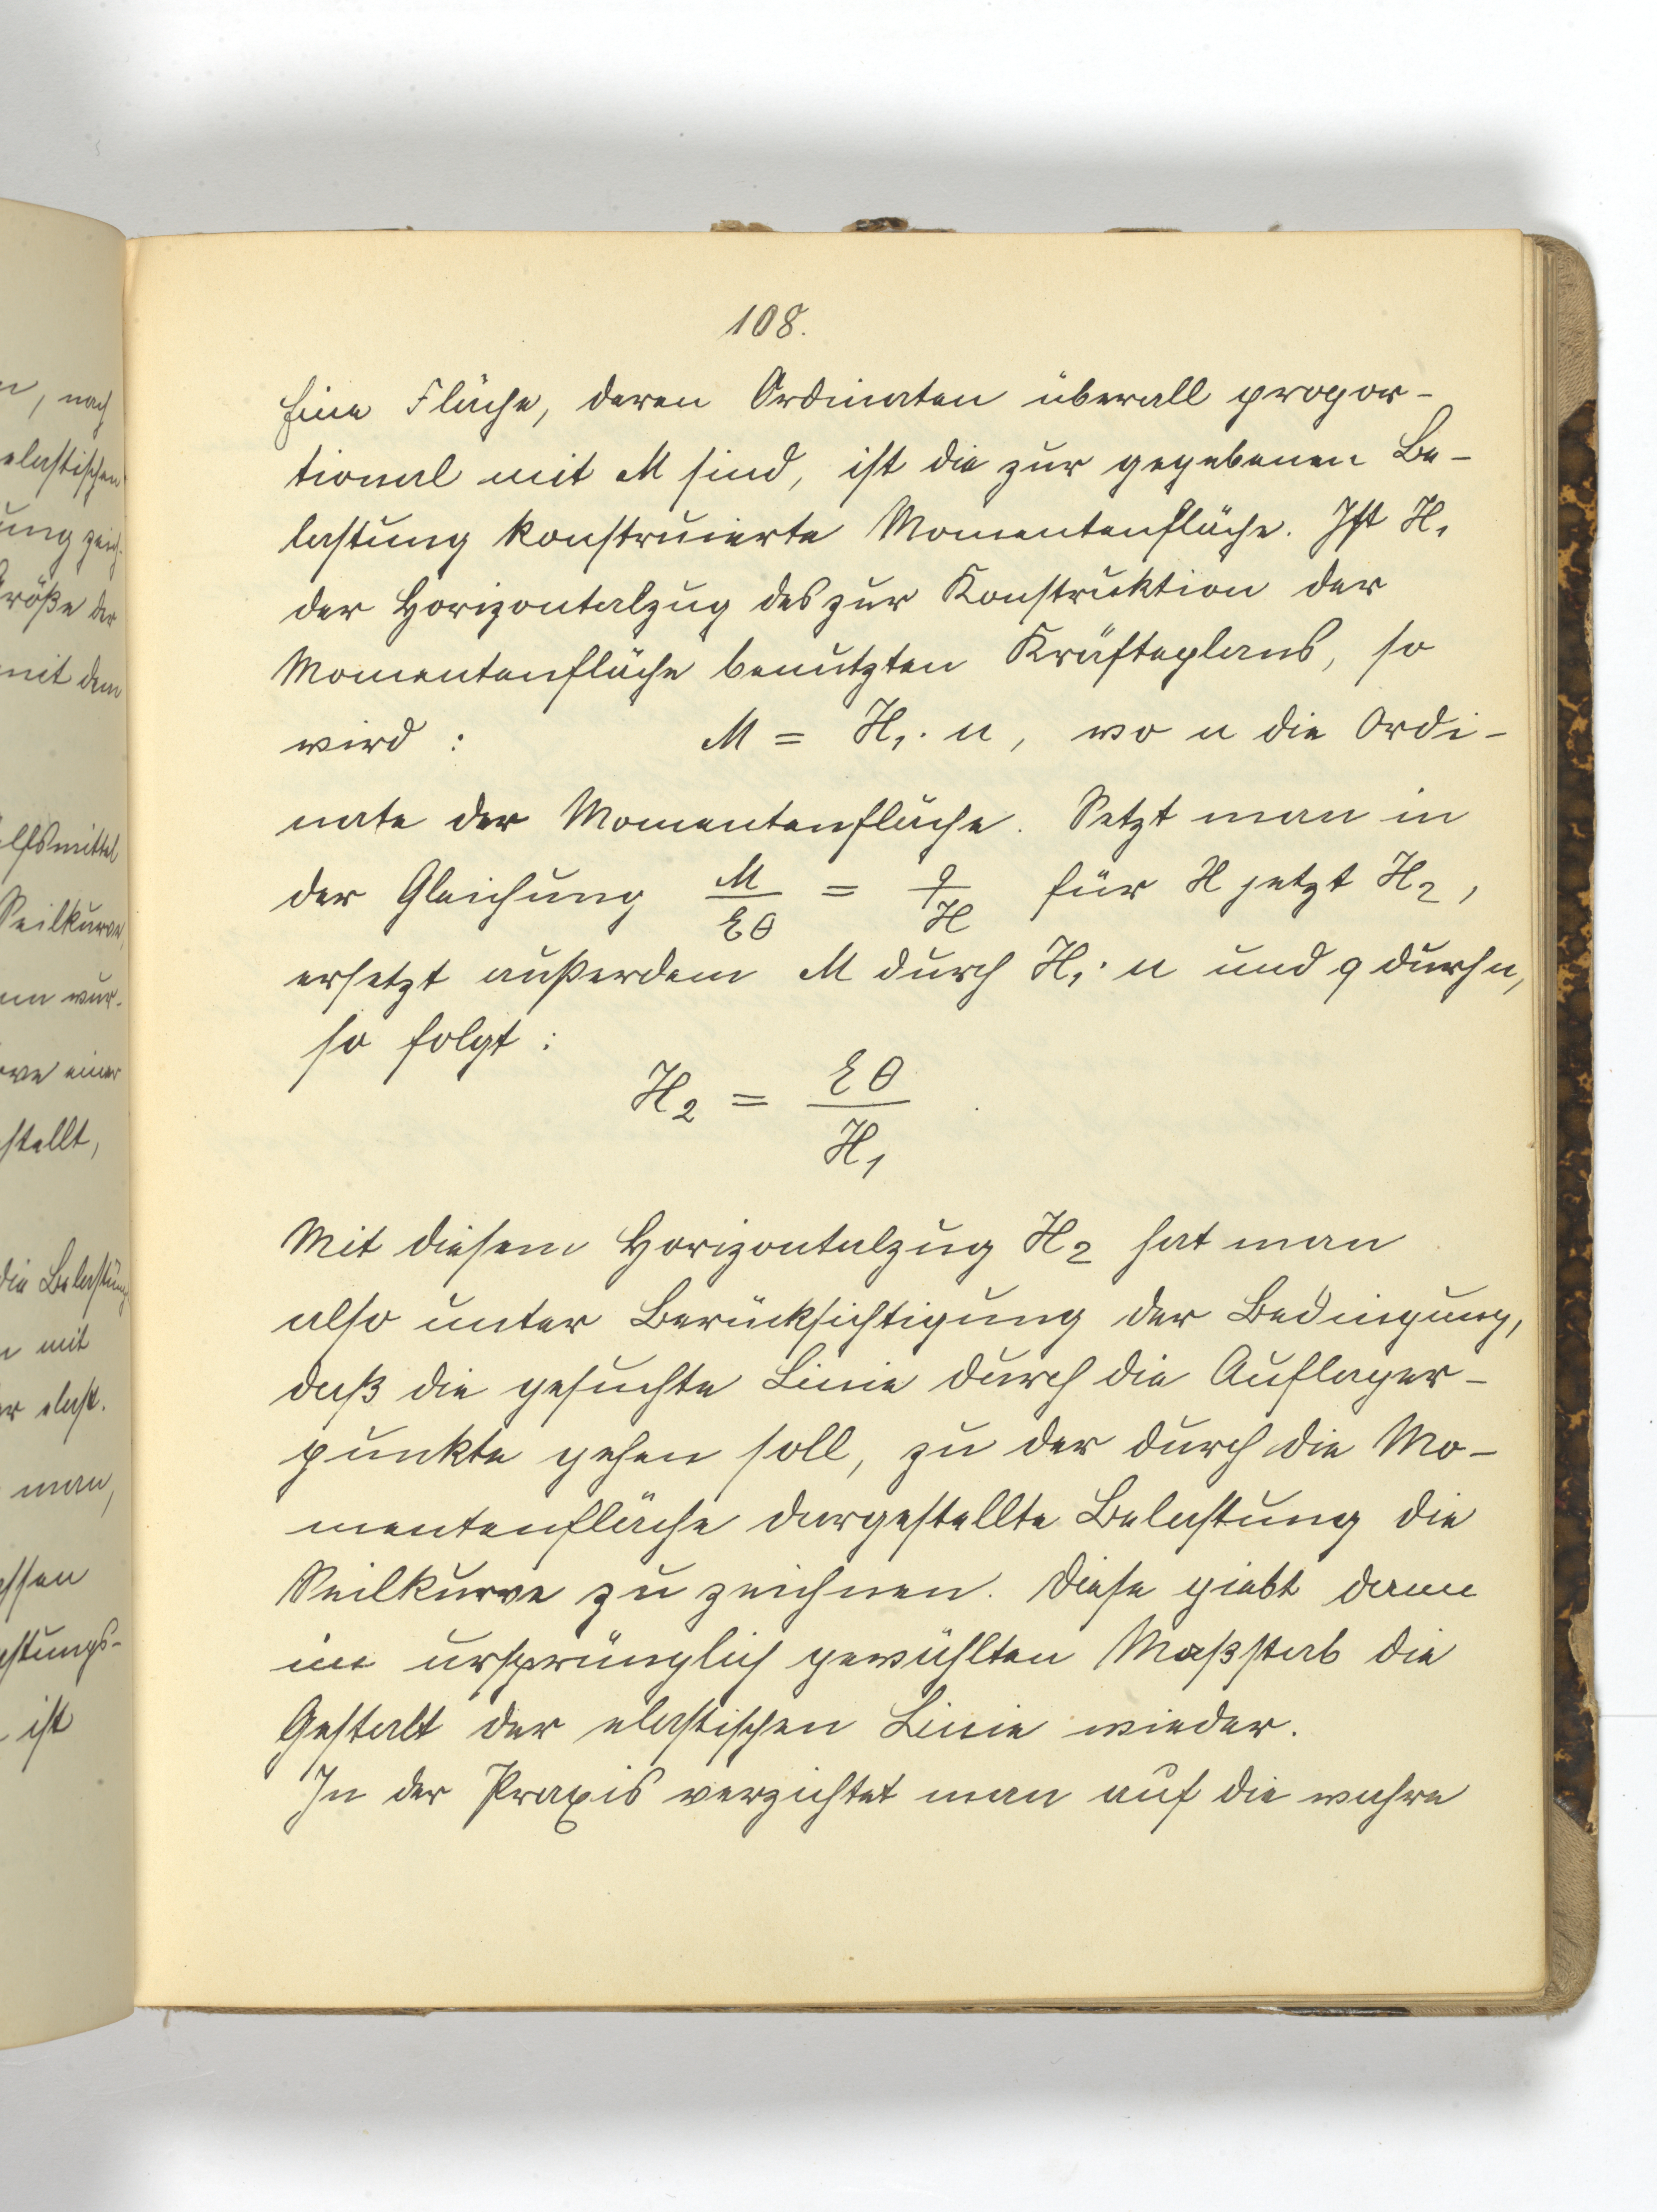 n, nach
elastischen
ung zeich-
Größe der
mit dem
Hilfsmittel
Seilkurve,
nn wur-
rve einer
stellt,
die Belastung
n mit
er elast.
man,
essen
astungs-
ist
108.
Eine Fläche, deren Ordinaten überall propor-
tional mit M sind, ist die zur gegebenen Be-
lastung konstruierte Momentenfläche. Ist H₁
der Horizontalzug des zur Konstruktion der
Momentenfläche benutzten Kräfteplans, so
wird : M = H₁ · n, wo n die Ordi-
nate der Momentenfläche. Setzt man in
der Gleichung M/εθ = q/H für H jetzt H₂,
ersetzt außerdem M durch H₁ · n und q durch n,
so folgt :
H₂ = εθ/H₁
Mit diesem Horizontalzug H₂ hat man
also unter Berücksichtigung der Bedingung,
daß die gesuchte Linie durch die Auflager-
punkte gehen soll, zu der durch die Mo-
mentenfläche dargestellte Belastung die
Seilkurve zu zeichnen. Diese giebt dann
im ursprünglich gewählten Maßstab die
Gestalt der elastischen Linie wieder.
In der Praxis verzichtet man auf die wahre